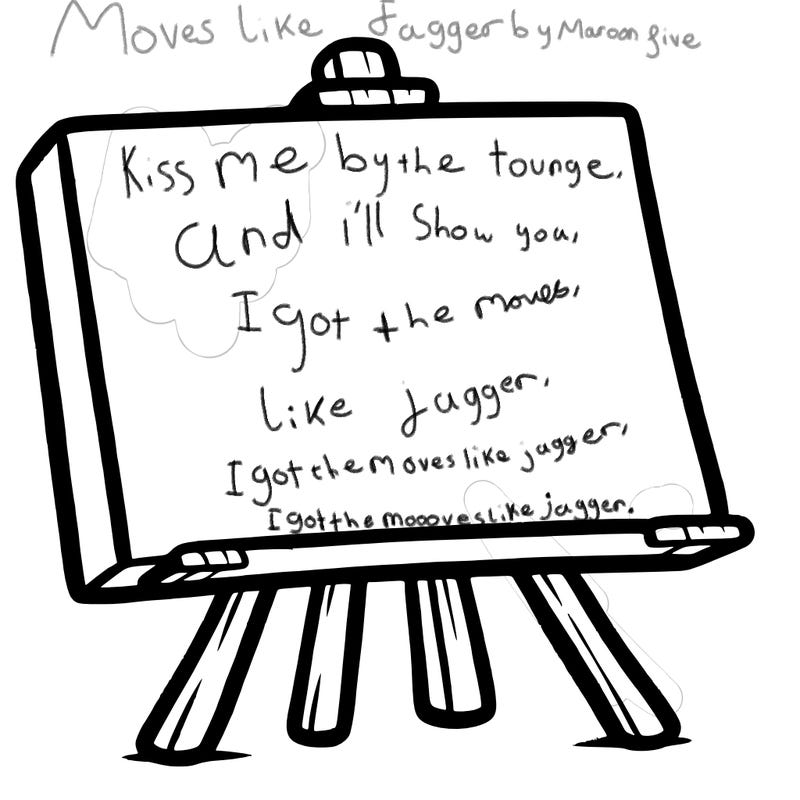 Moves like Jagger by Maroon five
Kiss me by the tounge,
and i'll Show you,
I got the moves,
like jagger,
I got the moves like jagger,
I got the moooves like jagger.